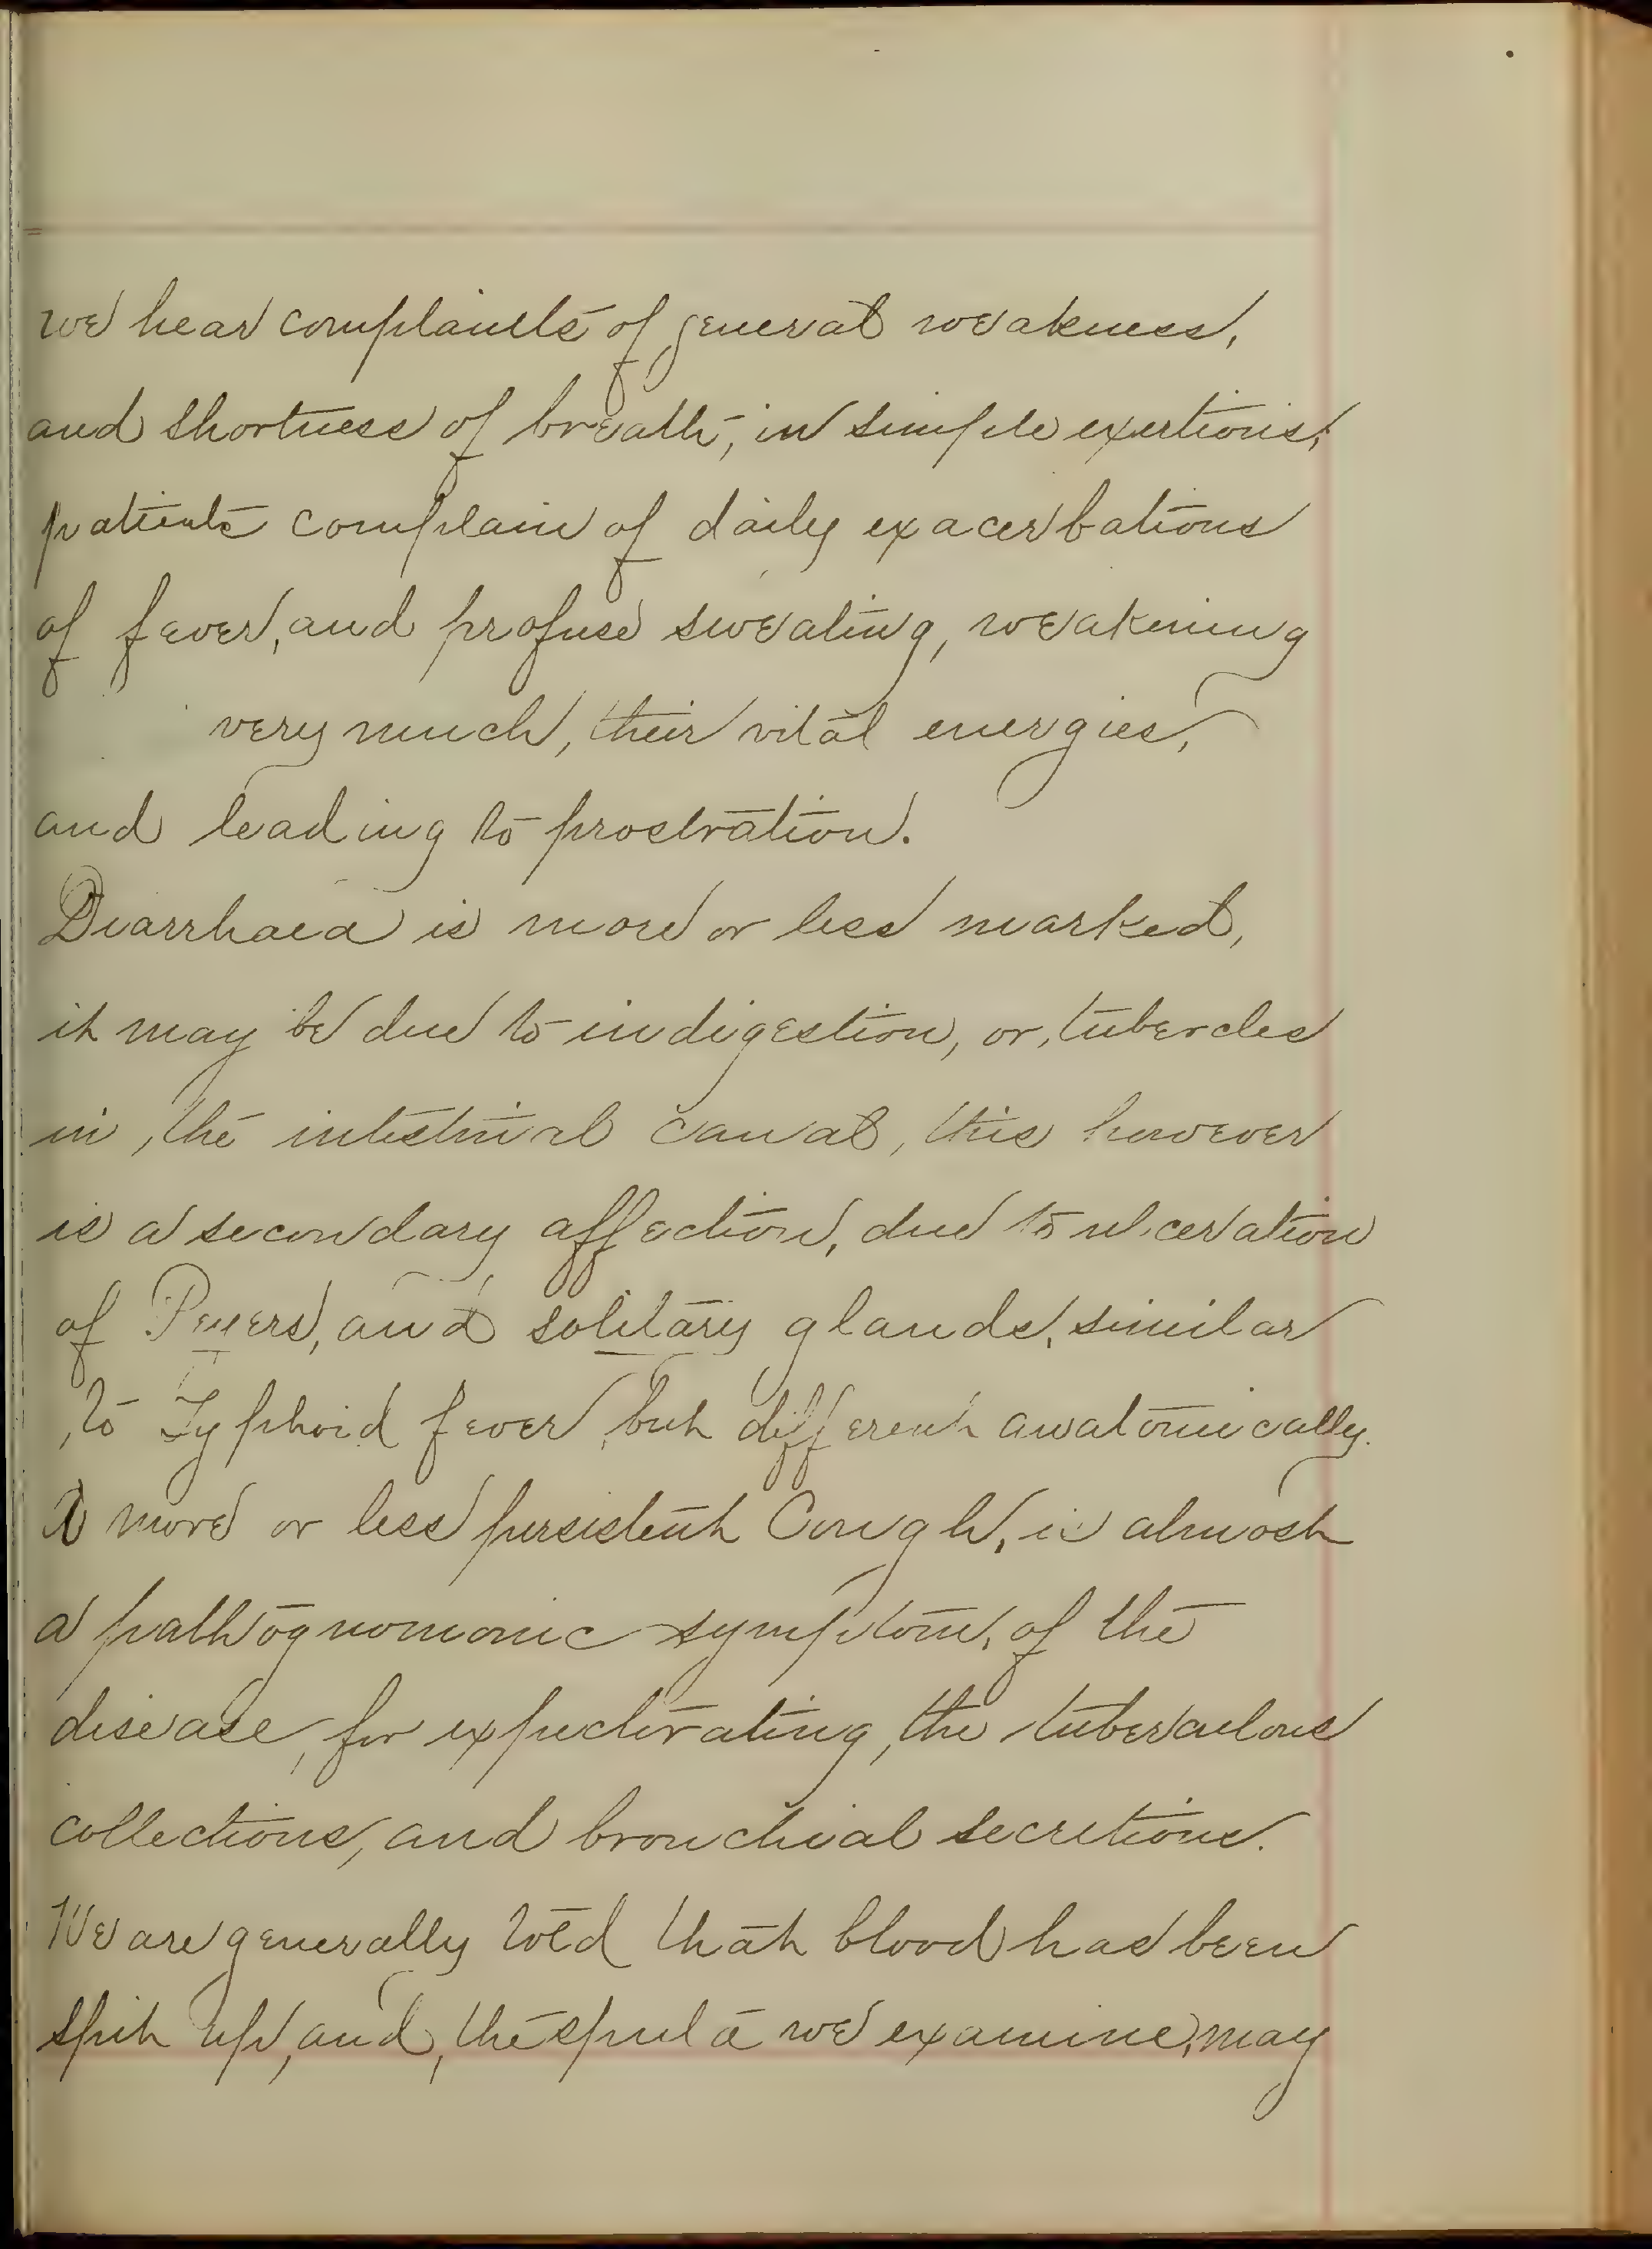 we hear complaints of general weakness,
and shortness of breath, in simple exertions,
patients complain of daily exacerbations
of fever, and profuse sweating, weakening
very much, their vital energies,
and leading to prostration.
Diarrhaea is more or less marked,
it may be due to indigestion, or, tubercles
in, the intestinal canal, this however
is a secondary affection, due to ulceration
of Peyers, and solitary glands, similar
to Typhoid fever, but different anatomically.
A more or less persistent Cough, is almost
a pathognomonic symptom, of the
disease, for expectorating, the tuberculous
collections, and bronchial secretions.
We are generally told that blood has been
spit up, and, the sputa we examine, may